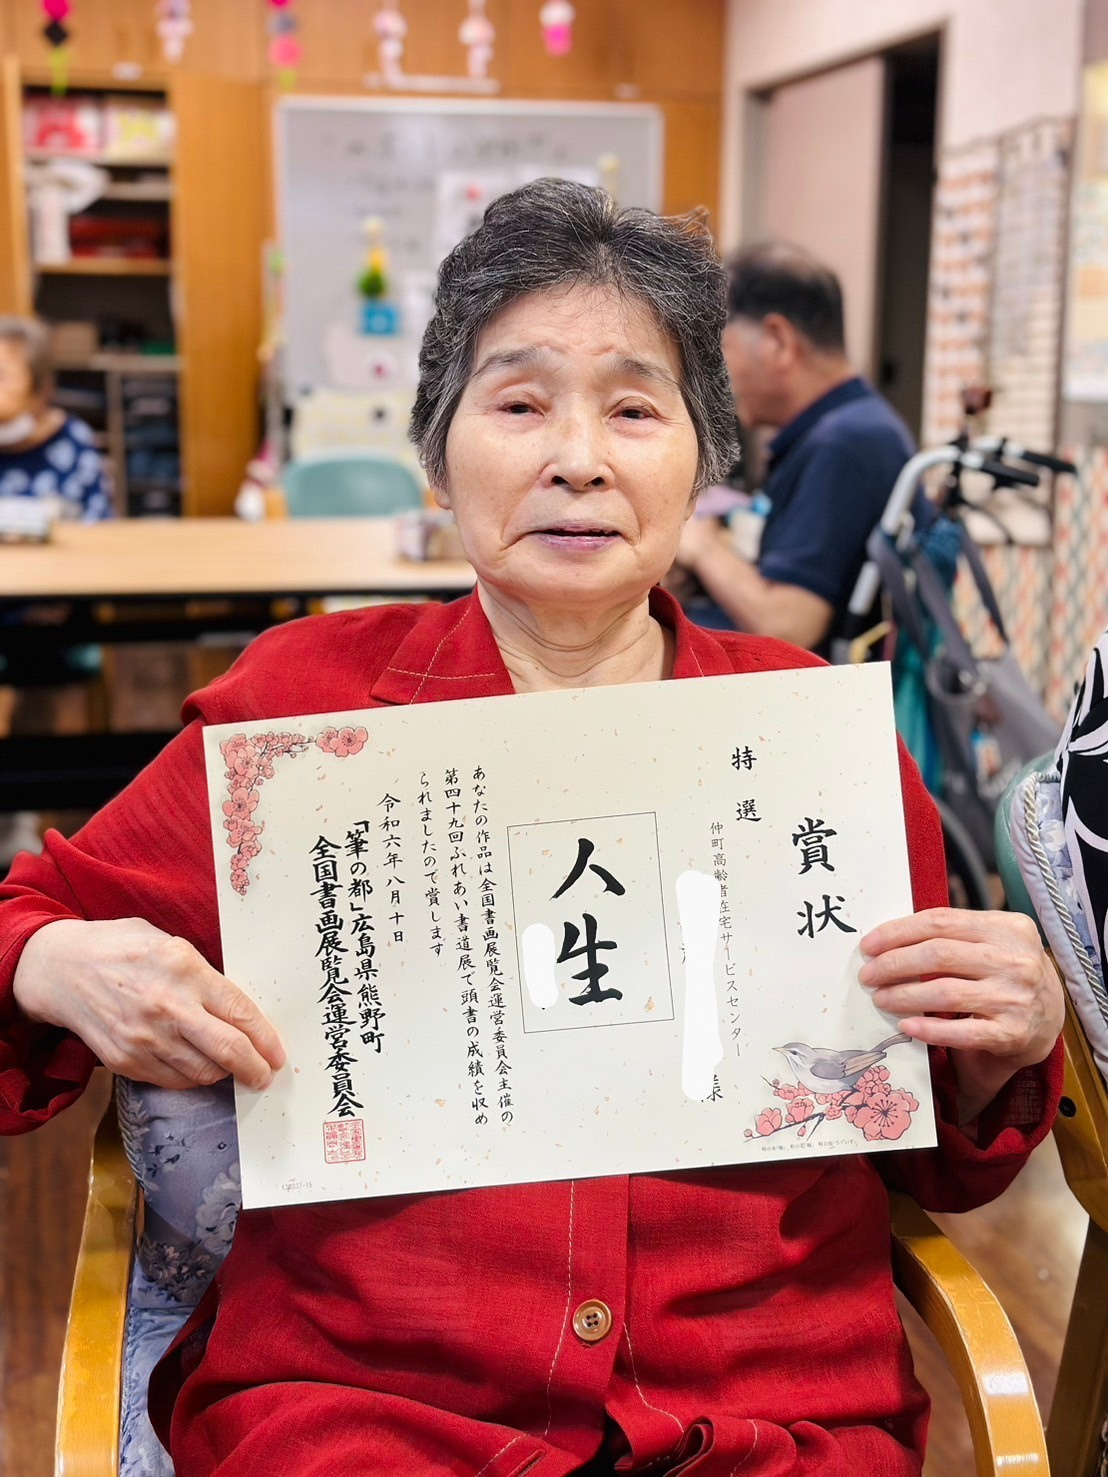 賞状
特選
仲町高齢者在宅サービスセンター
様
人生
あなたの作品は全国書画展覧会運営委員会主催の
第四十九回ふれあい書道展で頭書の成績を収め
られましたので賞します
令和六年八月十日
「筆の都」広島県熊野町
全国書画展覧会運営委員会